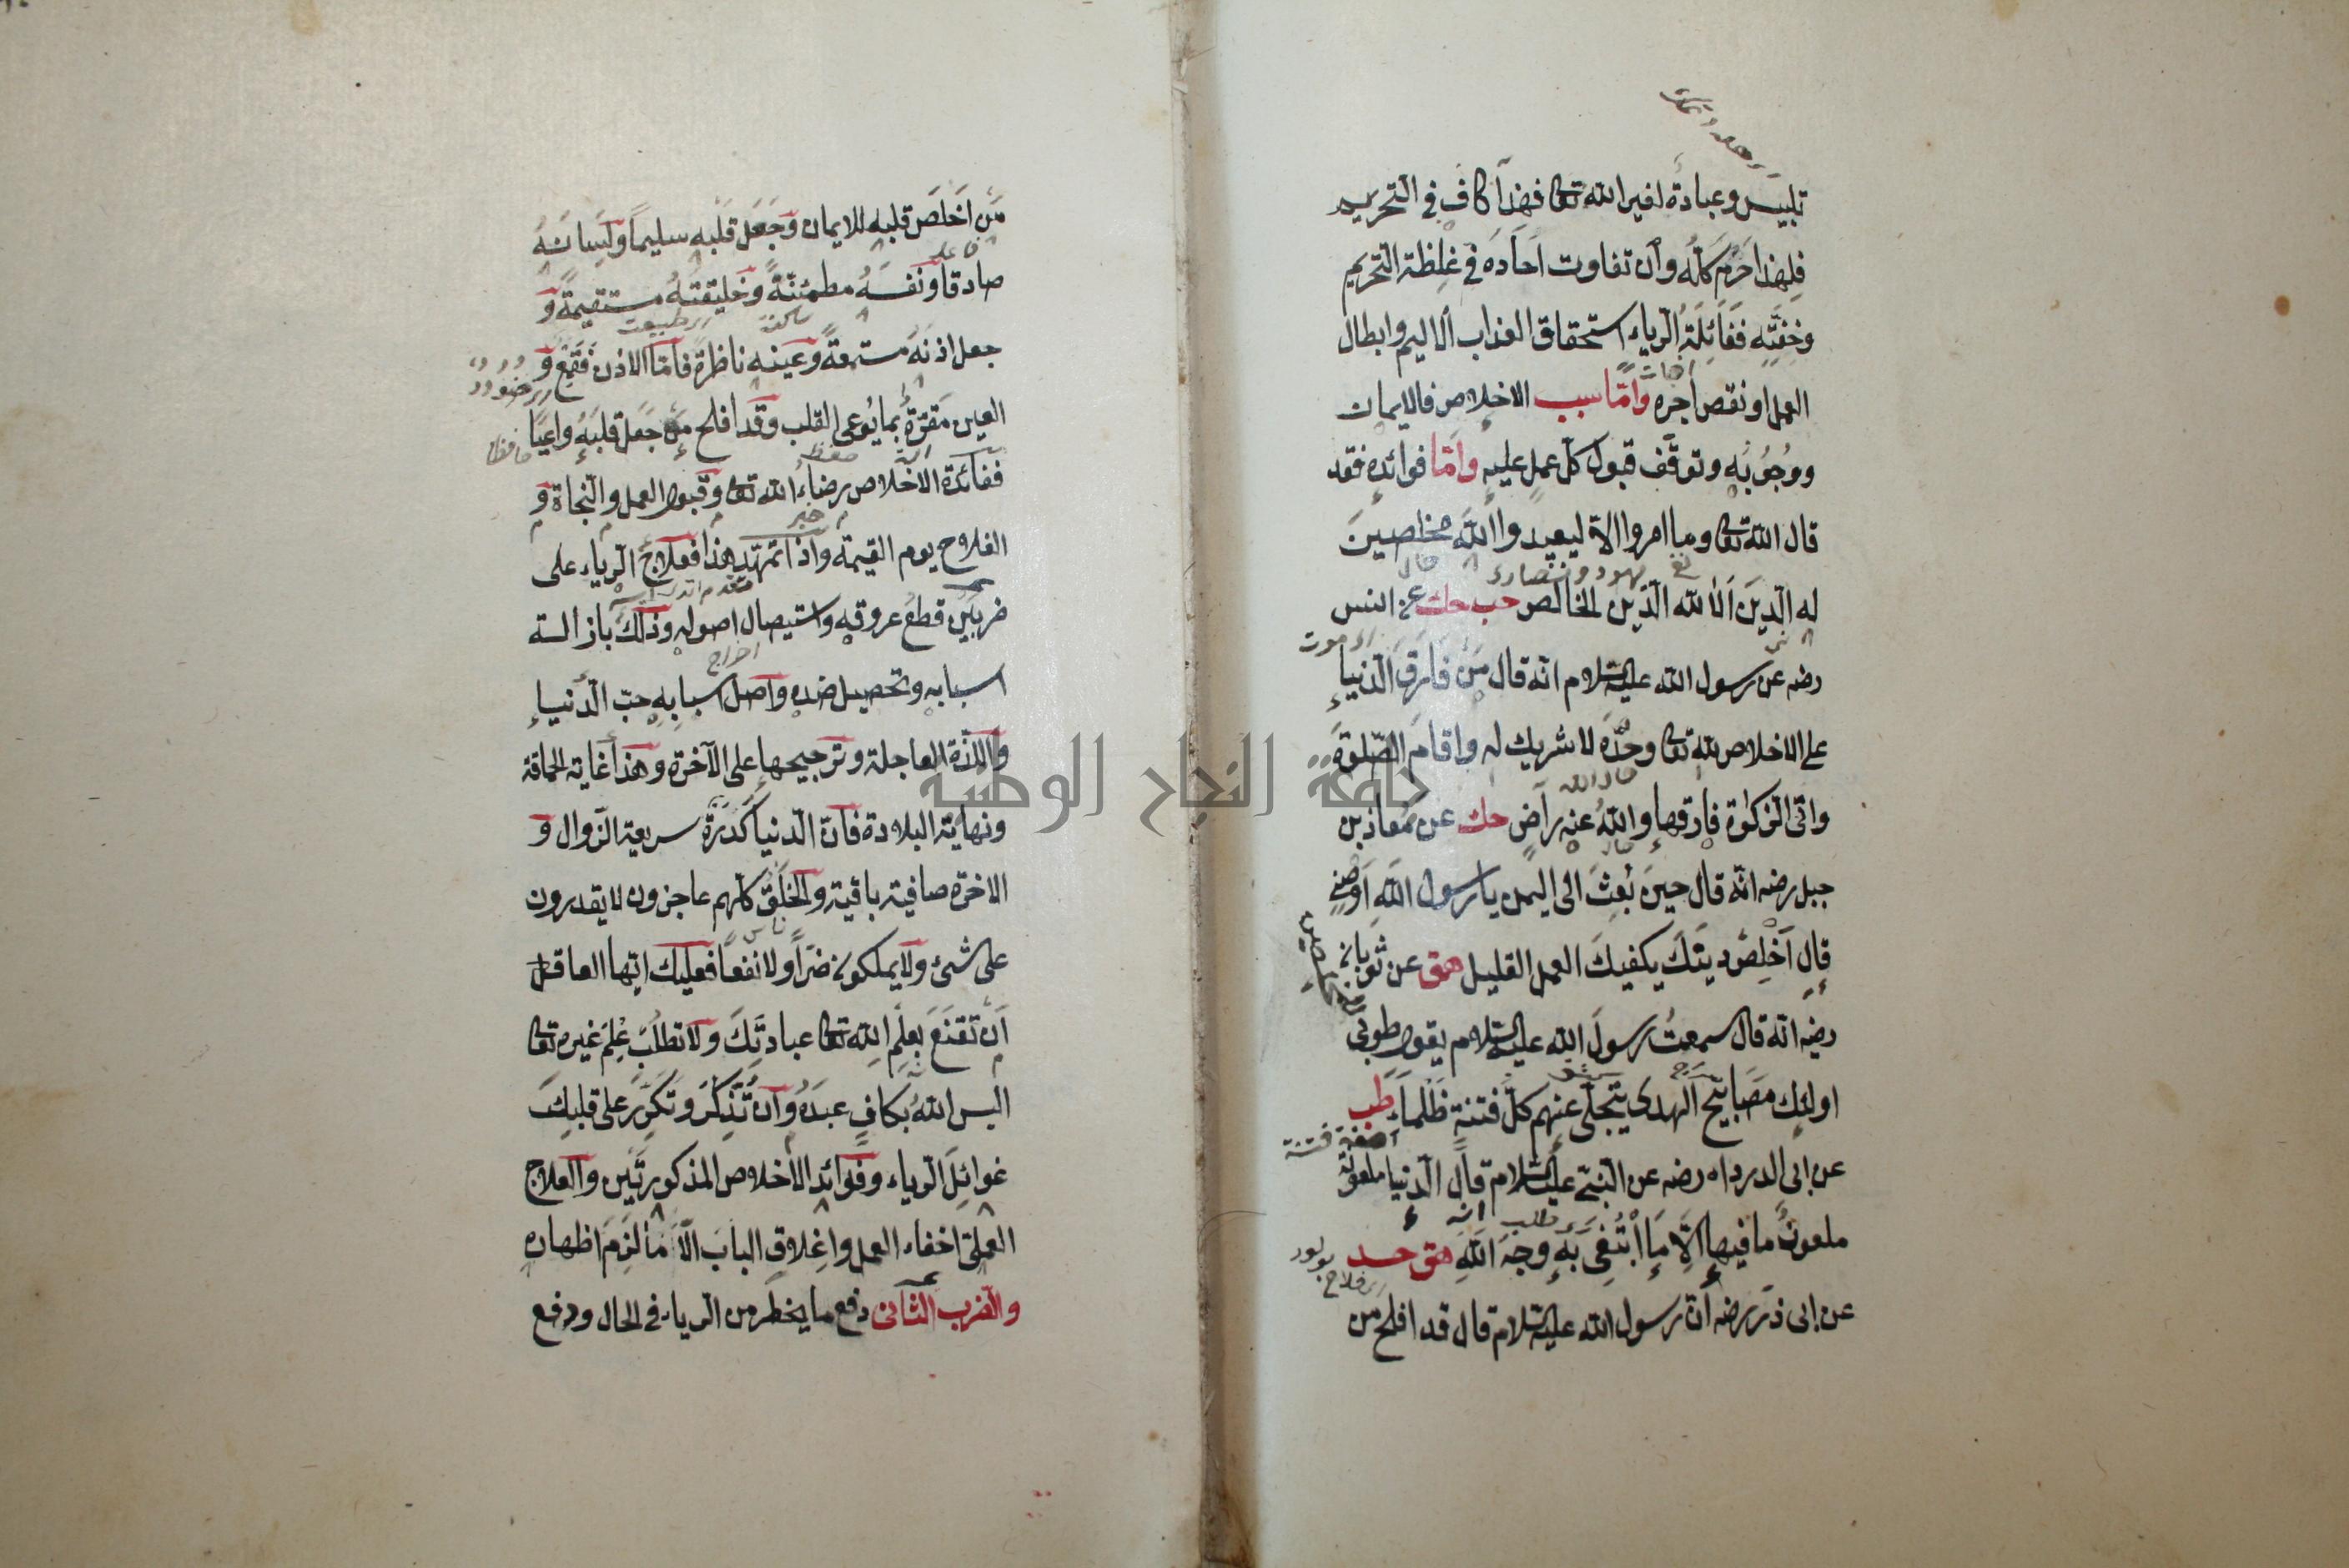 تلبيس وعبادة لغير الله تعا فهذا كاف في التحريم
فلهذا حرم كله وان تفاوت احاده في غلظة التحريم
وخفته فغائلة الرياء استحقاق العذاب الاليم وابطال
العمل او نقص اجره واما سبب الاخلاص فالايمان
ووجوبه وتوقف قبول كل عمل عليه واما فوائده فقد
قال الله تعا وما امروا الا ليعبدوا الله مخلصين
له الدين الا لله الدين الخالص حب حك عن انس
رضه عن رسول الله عليه السلام انه قال من فارق الدنيا
على الاخلاص لله تعا وحده لا شريك له واقام الصلوة
واتى الزكوة فارقها والله عنه راض حك عن معاذ بن
جبل رضه انه قال حين بعث الى اليمن يا رسول الله اوصني
قال اخلص دينك يكفيك العمل القليل هق عن ثوبان
رضه انه قال سمعت رسول الله عليه السلام يقول طوبى
اولئك مصابيح الهدى يتجلى عنهم كل فتنة ظلماء طب
عن ابي الدرداء رضه عن النبي عليه السلام قال الدنيا ملعونة
ملعون ما فيها الا ما ابتغى به وجه الله هق حد
عن ابى ذر رضه ان رسول الله عليه السلام قال قد افلح من
من اخلص قلبه للايمان وجعل قلبه سليما ولسانه
صادقا ونفسه مطمئنة وخليقته مستقيمة و
جعل اذنه مستمعة وعينه ناظرة فاما الاذن فقمع و
العين مقرة بما يوعى القلب وقد افلح من جعل قلبه واعيا
ففائدة الاخلاص رضاء الله تعا وقبول العمل والنجاة و
الفلاح يوم القيمة واذا تمهد هذا فعلاج الرياء على
ضربين قطع عروقه واستيصال اصوله وذلك بازالة
اسبابه وتحصيل ضده واصل اسبابه حب الدنيا
واللذة العاجلة وترجيحها على الآخرة وهذا غاية الحماقة
ونهاية البلادة فان الدنيا كدرة سريعة الزوال و
الاخرة صافية باقية والخلق كلهم عاجزون لا يقدرون
على شئ ولا يملكون ضرا ولا نفعا فعليك ايها العاقل
ان تقنع بعلم الله تعا عبادتك ولا تطلب علم غيره تعا
اليس الله بكاف عبده وان تذكر وتكرر على قلبك
غوائل الرياء وفوائد الاخلاص المذكورتين والعلاج
العملي اخفاء العمل واغلاق الباب الا ما لزم اظهاره
والضرب الثاني دفع ما يخطر من الرياء في الحال ودفع
جامعة النجاح الوطنية